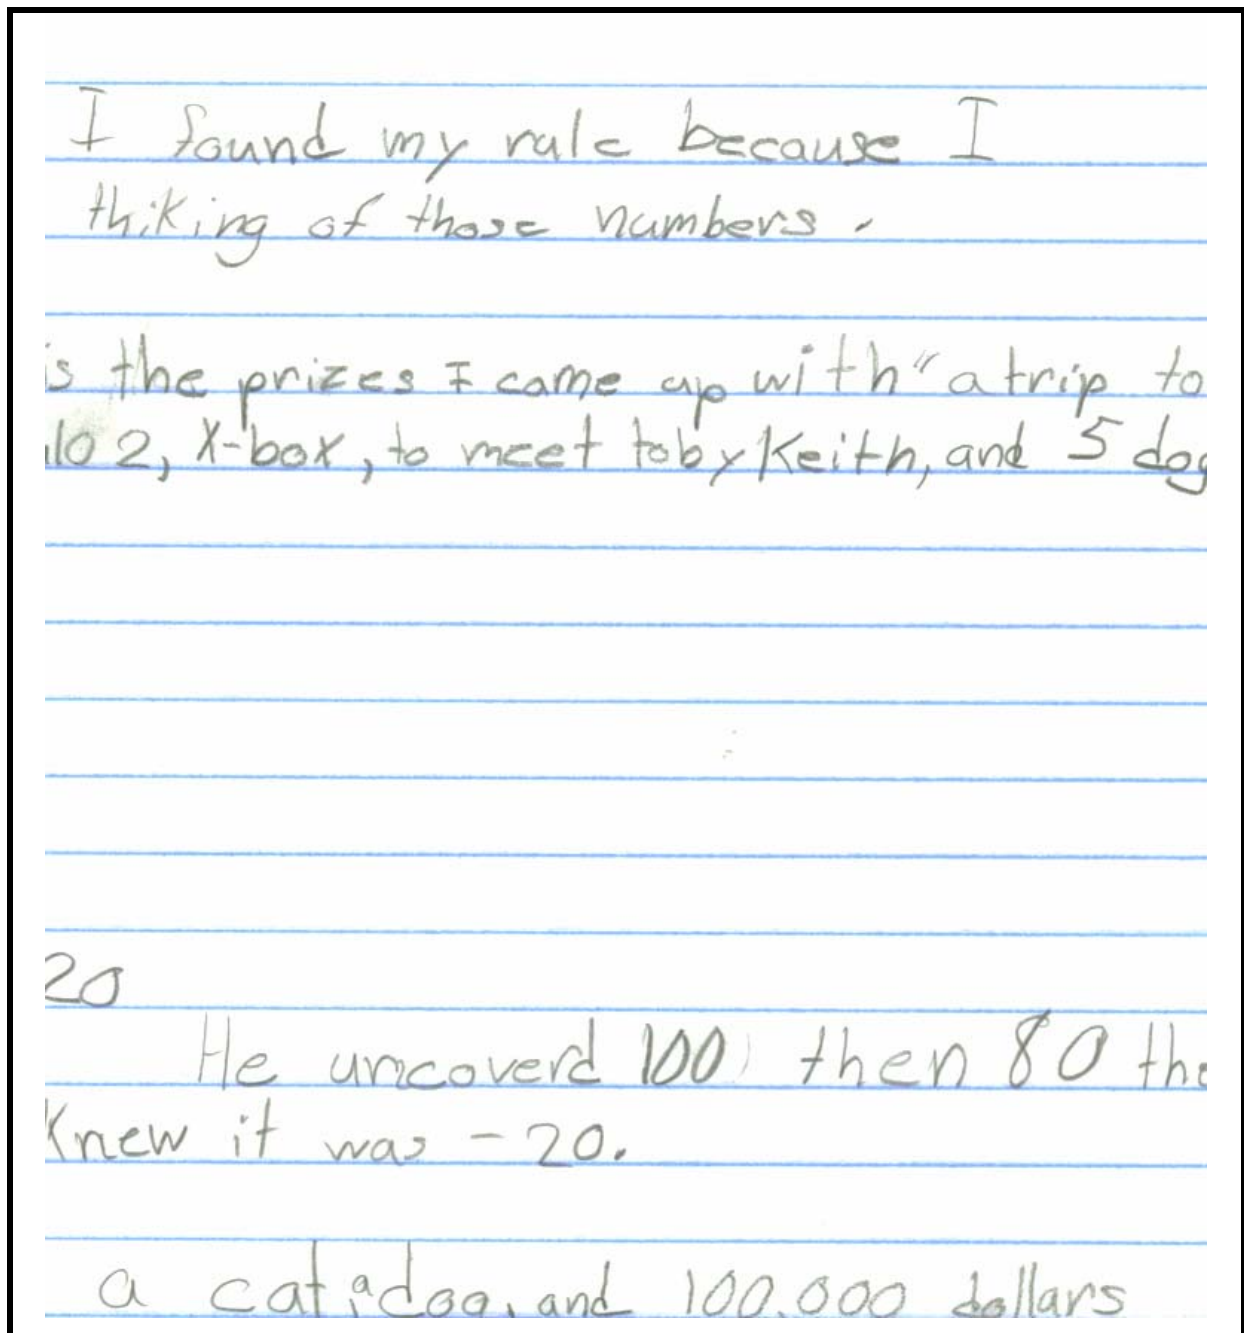 I found my rule because I
thiking of those numbers.
is the prizes I came up with "a trip to
lo 2, X-box, to meet toby Keith, and 5 dog
20
He uncoverd 100, then 80 the
Knew it was -20.
a cat, a dog, and 100,000 dollars